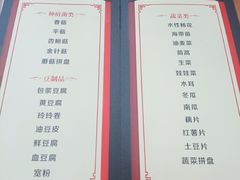 种植菌类
香菇
平菇
杏鲍菇
金针菇
蘑菇拼盘
豆制品
包浆豆腐
黄豆腐
玲玲卷
油豆皮
鲜豆腐
血豆腐
宽粉
蔬菜类
水性杨花
海带苗
油麦菜
茼蒿
生菜
娃娃菜
木耳
冬瓜
南瓜
藕片
红薯片
土豆片
蔬菜拼盘